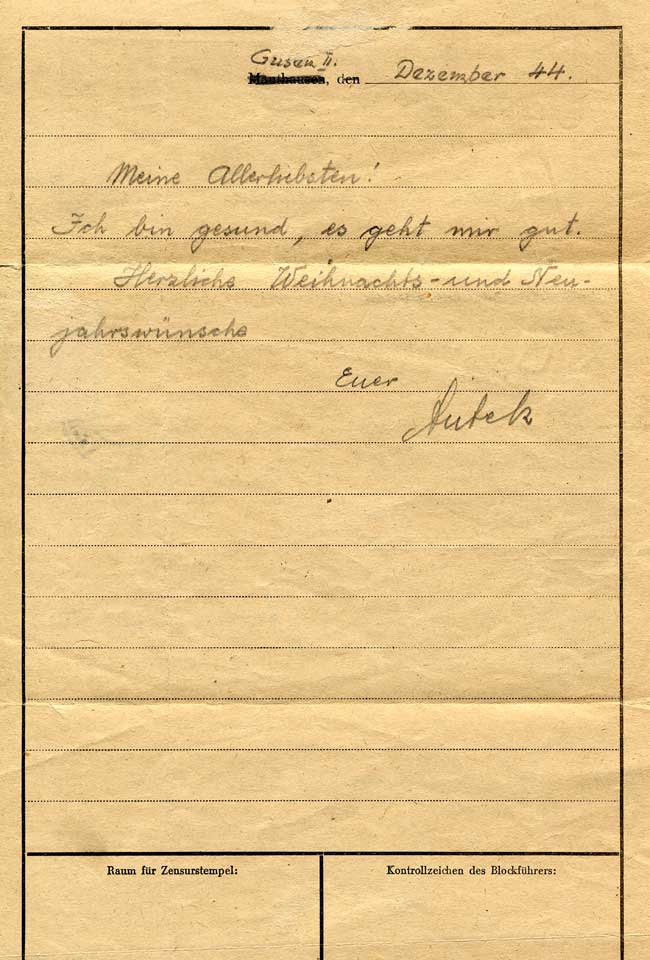 Gusen II.
Mauthausen, den Dezember 44.
Meine Allerliebsten!
Ich bin gesund, es geht mir gut.
Herzliche Weihnachts-und Neu-
jahrswünsche
Euer
Antek
Raum für Zensurstempel:
Kontrollzeichen des Blockführers: